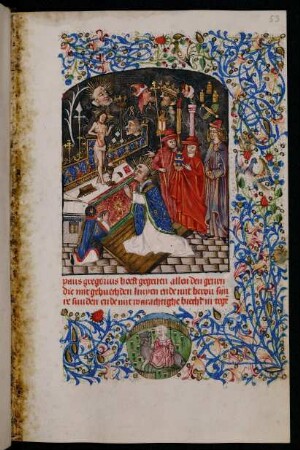 53
paus gregorius heeft gegeven allen den genen
die mit gebuechden knyen ende mit berou hare
re sunden ende mit warachtighe biecht